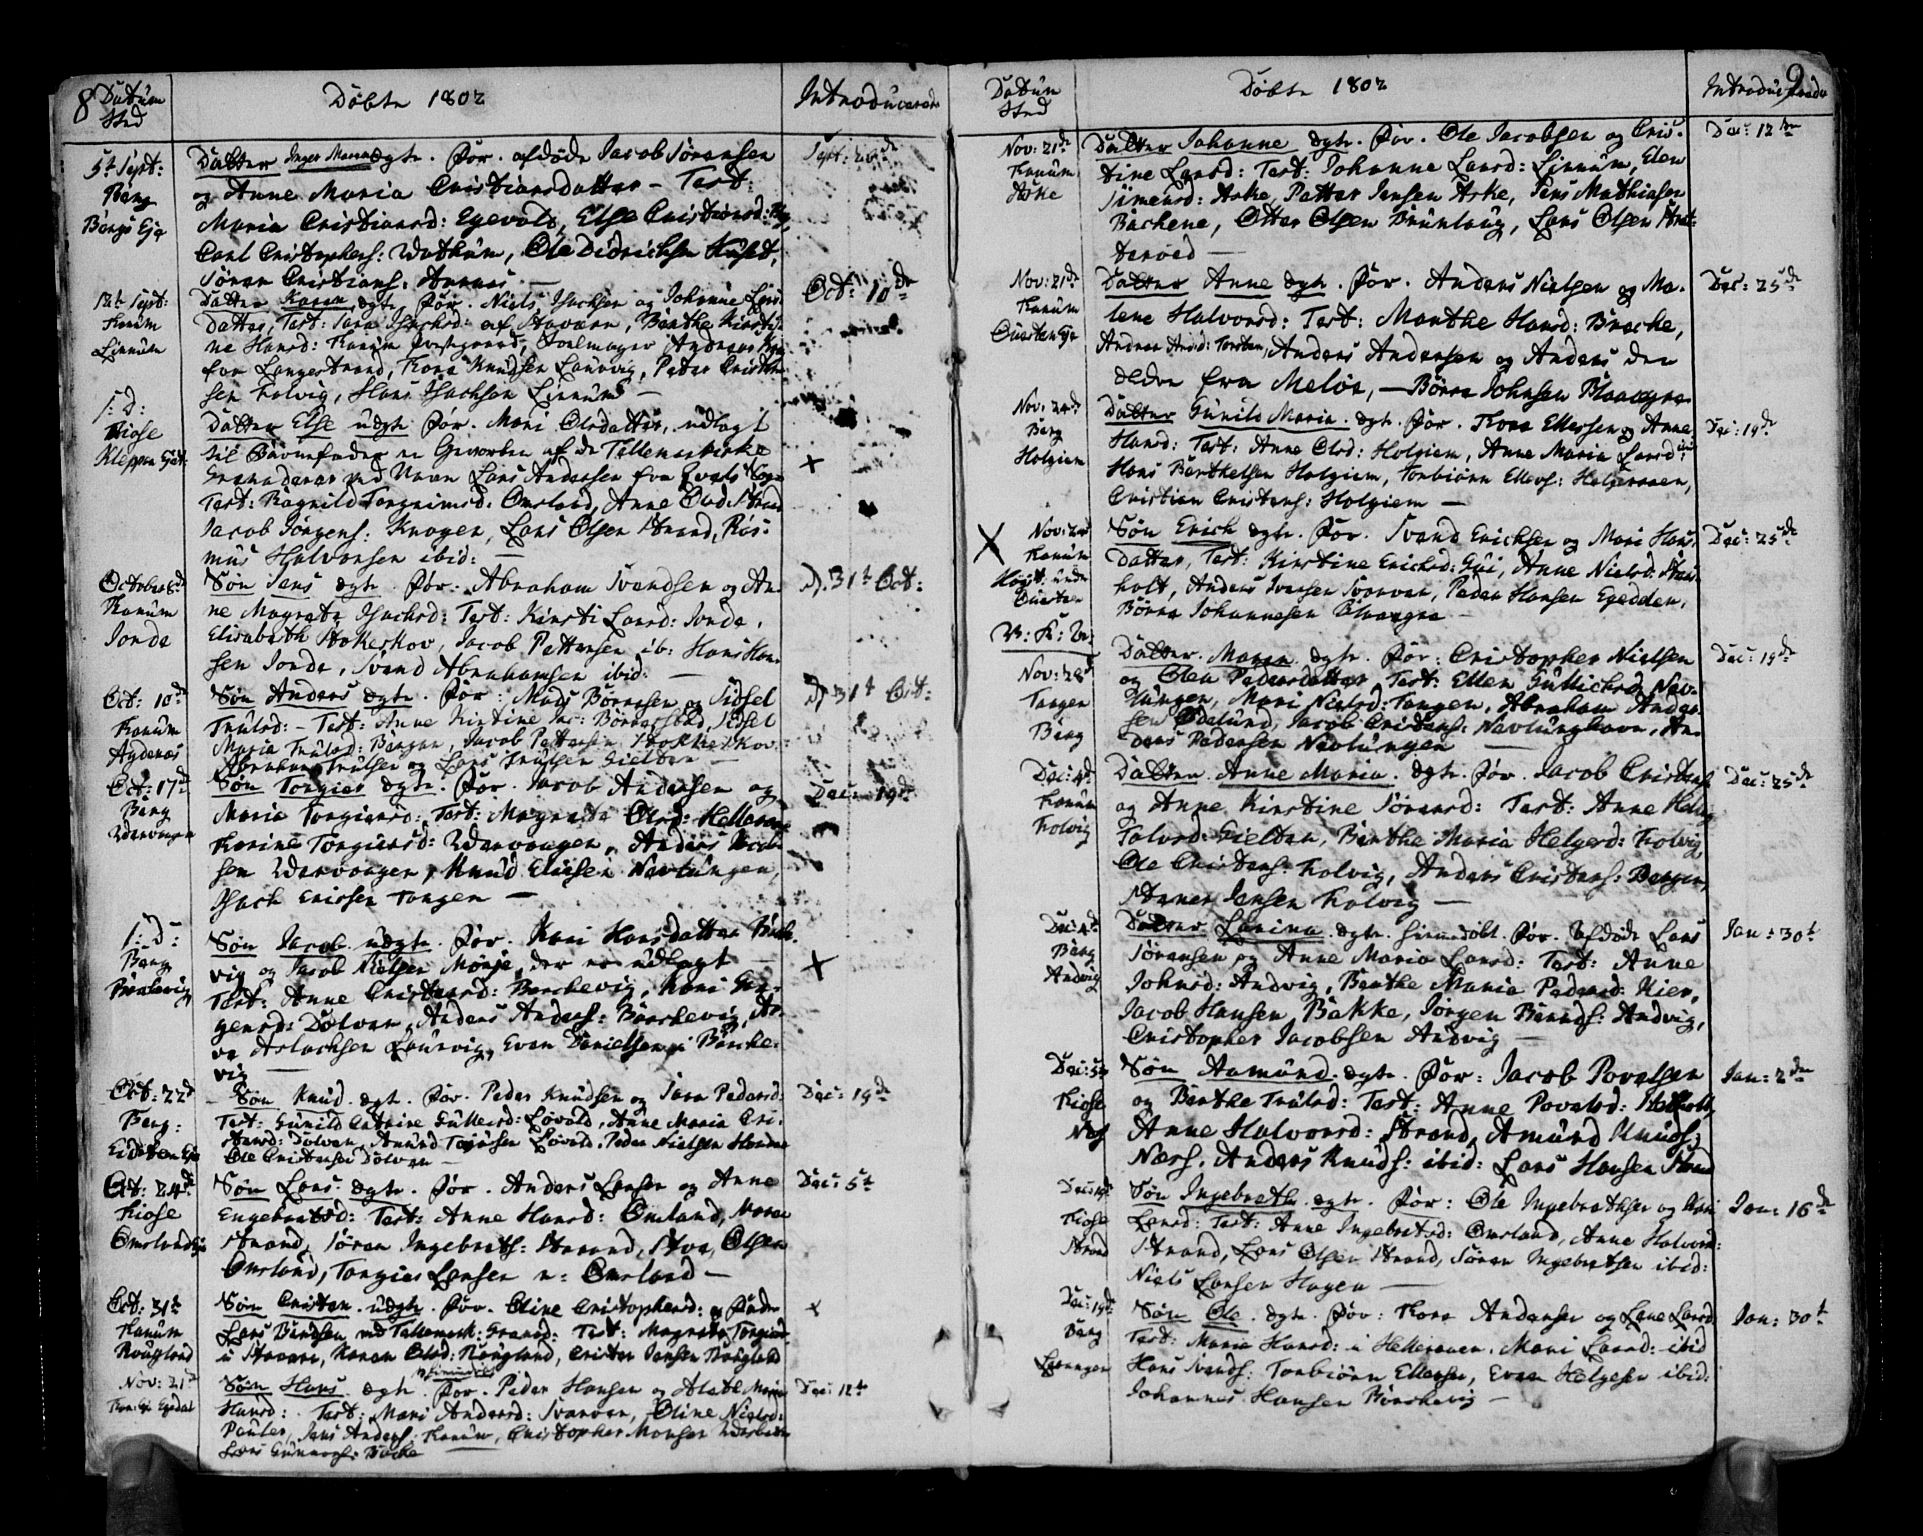 8 Datum
Sted
Döbte 1802
Introducerede
5t Sept:
Berg
Bergs Eje
Datter Inger Maria ægte. For. afdöde Jacob Sörensen
og Anne Maria Cristiansdatter - Test:
Maria Cristiansd: Egevold, Else Cristiansd:
Carl Cristophers: Wathum, Ole Didrichsen
Sören Cristians: Aarnæs
Sept: 26de
12t Sept:
Tanum
Linnum
Datter Karen ægte. For. Niels Isachsen og Johanne Lars
datter, Test: Sara Isachsd: af Staværn, Berthe Kirsti
ne Hansd: Tanum Præstegaard, Andreas
fra Langestrand, Tore Knudsen Laurvig, Peder Cristen
sen Tolvig, Hans Isachsen Linnum
Oct: 10de
s: d:
Kiose
Kleppen Eje:
Datter Else uægte For. Mari Olsdatter, udlagt
til Barnefader en Gevorben af de Tellemarkiske
Grenaderer ved Navn Lars Andersen fra Qvals Sogn
Test: Ragnild Torgrimsd: Omsland, Anne Olsd: Strand
Jacob Jörgens: Krogen, Lars Olsen Strand, Ras-
mus Halvorsen ibid:
+
October
Tanum
Jonde
Sön Jens ægte For. Abraham Svendsen og An-
ne Magrete Isachsd: Test: Kirsti Larsd: Jonde,
Elisabeth Stokkeskov, Jacob Pettersen ib: Hans Han-
sen Jonde, Svend Abrahamsen ibid:
D. 31t Oct:
Oct: 10de
Tanum
Agdenæs
Sön Anders ægte. For: Mads Börresen og Sidsel
Trulsd: - Test: Anne Kirstine Sidsel
Maria Trulsd: Bergan, Jacob Pettersen Stokkeskov
Abraham Trulsen og Lars Trulsen Gielten
D. 31t Oct:
Oct: 17de
Berg
Wærvagen
Sön Torgier ægte. For. Jacob Andersen og
Maria Torgiersd: Test: Magrete Olsd: Helleraae
Karine Torgiersd: Wærvagen, Anders
sen Wærvagen, Knud Ellefsen Nevlungen,
Isach Ericsen Tangen
Dec: 19de
s: d:
Berg
Barkevig
Sön Jacob uægte. For. Kari Hansdatter Bark-
vig og Jacob Nielsen Mörje, der er udlagt
Test: Anne Cristensd: Barckevig, Kari
gensd: Dolven, Anders Anders: Barkevig,
ve Aslachsen Laurvig, Even Danielsen i Barcke-
vig
+
Oct: 22de
Berg:
Eidsten Eje
Sön Knud ægte. For. Peder Knudsen og Sara Pedersd:
Test: Gunild Catrine Gulliksd: Lövold, Anne Maria Cri-
stensd: Dolven, Amund Lövold, Peder Nielsen
Ole Cristensen Dolven
Dec: 19de
Oct: 24de
Kiose
Omsland Eje
Sön Lars. ægte. For. Anders Larsen og Anne
Engebretsd: Test: Anne Hansd: Omsland, Maren
Strand, Sören Ingebrets: Strand, Olsen
Omsland, Torgier Larsen n: Omsland
Dec: 5t
Oct: 31t
Tanum
Rougland
Sön Cristen. uægte. For. Oline Cristophersd: og
Lars Bendsen ved Tellemark: Grenad: Test: Magrete Torgiersd:
i Staværn, Karen Olsd: Rougland, Crister Jensen Rougland
+
Nov: 21de
Tanum Eje Egedal
Sön Hans ægte For. Peder Hansen og Maria
Hansd: Test: Mari Andersd: Svarven, Oline Nielsd:
Pauler, Jens Anders: Tanum, Cristopher Monsen
Lars Gunnars: Bache
Dec: 12te
Datum
Sted
Döbte 1802
Introducerede
9
Nov: 21de
Tanum
Aske
Datter Johanne ægte. For. Ole Jacobsen og Cris-
tine Larsd: Test: Johanne Larsd: Linnum, Elen
Simensd: Aske, Petter Jensen Aske, Jens Mathiasen
Bachene, Otter Olsen Brunlaug, Lars Olsen
Dec: 12te
Nov: 21de
Tanum
Qvesten Eje
Datter Anne ægte. For. Anders Nielsen og Ma-
lene Halvorsd: Test: Marthe Hansd: Breche,
Andrea Anders Andersen og Anders den
ældre fra Melöe, Börre Johnsen Blaaegre
Dec: 25de
Nov: 24de
Berg
Holgiem
Datter Gunild Maria. ægte. For. Tore Ellefsen og Anne
Hansd: Test: Anne Olsd: Holgiem, Anne Maria Larsd:
Hans Berthelsen Holgiem, Torbiörn Ellefs: Helgeraaen,
Cristian Cristens: Holgiem
Dec: 19de
X
Nov: 28
Tanum
under
Qvesten
Sön Erich ægte. For. Svend Erichsen og Mari Hans
datter, Test: Kirstine Erichsd: Gui, Anne Nielsd:
holt, Anders Iversen Svarven, Peder Hansen Egedalen,
Börre Johannesen Blaaegre
Dec: 25de
Nov: 28de
Tangen
Berg
Datter Maren ægte. For: Cristopher Nielsen
og Olea Pedersdatter, Test: Ellen Gullichsd: Nev-
lungen, Mari Nielsd: Tangen, Abraham Ander-
sen Ödelund, Jacob Cristens: Nevlunghavn, An-
ders Pedersen Nevlungen
Dec: 19de
Dec: 4de
Tanum
Tolvig
Datter Anne Maria. ægte. For. Jacob Cristens:
og Anne Kirstine Sörensd: Test: Anne
Tolvsd: Gielten, Berthe Maria Helgesd: Tolvig,
Ole Cristens: Tolvig, Anders Cristens: Bergen,
Jensen Tolvig
Dec: 25de
Dec: 4de
Berg
Andvig
Datter Larina ægte. hiemedöbt. For. Afdöde Lars
Sörensen og Anne Maria Larsd: Test: Anne
Johnsd: Andvig, Berthe Maria Pedersd: Kier,
Jacob Hansen Bakke, Jörgen Berends: Andvig,
Cristopher Jacobsen Andvig
Jan: 30t
Dec: 5te
Kiose
Næs
Sön Aamund ægte. For: Jacob Povelsen
og Berthe Trulsd: Test: Anne Povelsd:
Anne Halvorsd: Strand, Amund Knuds:
Næss, Anders Knuds: ibid: Lars Hansen Strand
Jan: 2den
Kiose
Strand
Sön Ingebreth ægte. For: Ole Ingebrethsen og Kari
Larsd: Test: Anne Ingebretsd: Omsland, Anne Halvorsd:
Strand, Lars Olsen Strand, Sören Ingebretsen ibid:
Niels Larsen Hagen
Jan: 16de
Dec: 19de
Berg
Sön Ole ægte. For: Tore Andersen og Lene Larsd
Test: Maria Hansd: i Helleraaen, Mari Larsd: ibid
Hans Svends: Torbiörn Ellefsen, Even Helgesen ibid:
Johannes Hansen Barckevig
Jan: 30t